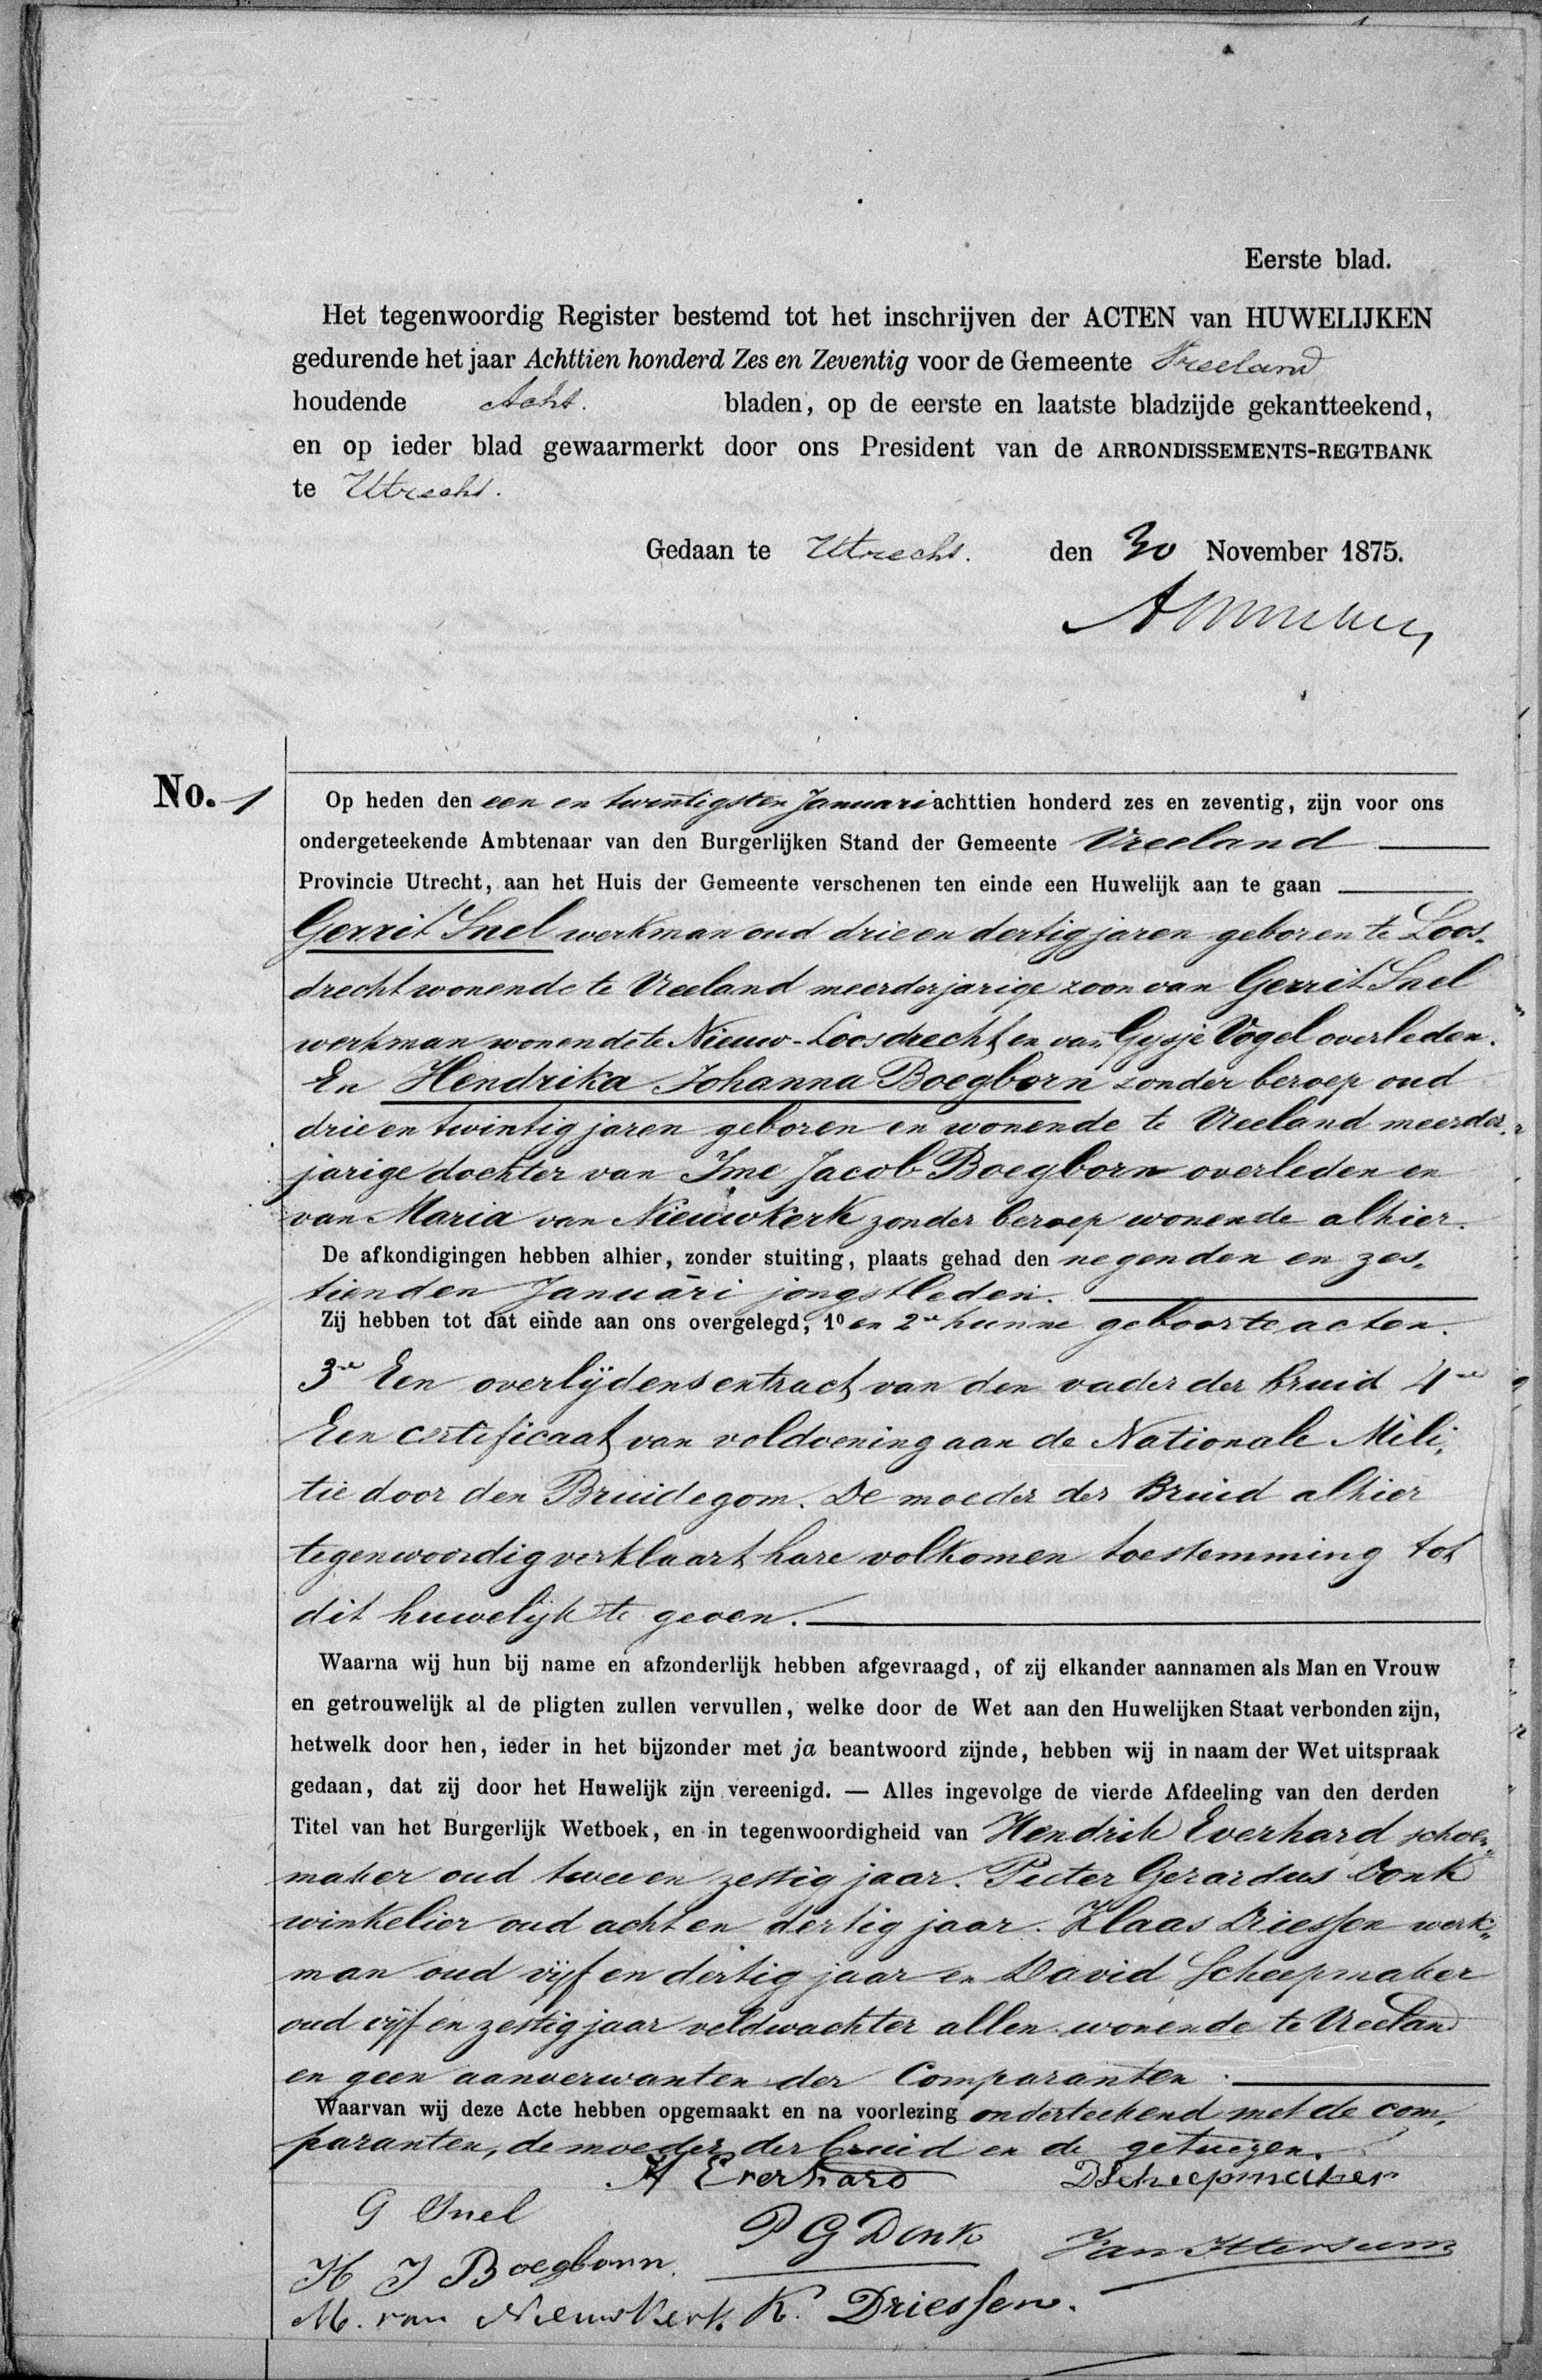 Eerste blad.
Het tegenwoordig Register bestemd tot het inschrijven der ACTEN van HUWELIJKEN
gedurende het jaar Achttien honderd Zes en Zeventig voor de Gemeente Vreeland
houdende Acht. bladen, op de eerste en laatste bladzijde gekantteekend,
en op ieder blad gewaarmerkt door ons President van de ARRONDISSEMENTS-REGTBANK
te Utrecht.
Gedaan te Utrecht. den 30 November 1875.
No. 1
Op heden den een en twintigsten Januari achttien honderd zes en zeventig, zijn voor ons
ondergeteekende Ambtenaar van den Burgerlijken Stand der Gemeente Vreeland
Provincie Utrecht, aan het Huis der Gemeente verschenen ten einde een Huwelijk aan te gaan
Gerrit Snel werkman oud drie en dertig jaren geboren te Loos-
drecht wonende te Vreeland meerderjarige zoon van Gerrit Snel
werkman wonende te Nieuw-Loosdrecht en van Gysje Vogel overleden.
En Hendrika Johanna Boegborn zonder beroep oud
drie en twintig jaren geboren en wonende te Vreeland meerder-
jarige dochter van Ime Jacob Boegborn overleden en
van Maria van Nieuwkerk zonder beroep wonende alhier.
De afkondigingen hebben alhier, zonder stuiting, plaats gehad den negenden en zes-
tienden Januari jongstleden.
Zij hebben tot dat einde aan ons overgelegd, 1º en 2e hunne geboorte acten.
3e Een overlijdens extract van den vader der bruid 4e
Een certificaat van voldoening aan de Nationale Mili-
tie door den Bruidegom. De moeder der Bruid alhier
tegenwoordig verklaart hare volkomen toestemming tot
dit huwelijk te geven.
Waarna wij hun bij name en afzonderlijk hebben afgevraagd, of zij elkander aannamen als Man en Vrouw
en getrouwelijk al de pligten zullen vervullen, welke door de Wet aan den Huwelijken Staat verbonden zijn,
hetwelk door hen, ieder in het bijzonder met ja beantwoord zijnde, hebben wij in naam der Wet uitspraak
gedaan, dat zij door het Huwelijk zijn vereenigd. — Alles ingevolge de vierde Afdeeling van den derden
Titel van het Burgerlijk Wetboek, en in tegenwoordigheid van Hendrik Everhard schoen-
maker oud twee en zestig jaar. Pieter Gerardus Donk
winkelier oud acht en dertig jaar. Klaas Driessen werk-
man oud vijf en dertig jaar en David Scheepmaker
oud vijf en zestig jaar veldwachter allen wonende te Vreeland
en geen aanverwanten der Comparanten.
Waarvan wij deze Acte hebben opgemaakt en na voorlezing onderteekend met de com-
paranten, de moeder der bruid en de getuigen.
H Everhard DScheepmaker
G Snel
P G Donk Van Ittersum
H J Boegborn.
M. van Nieuwkerk. K. Driessen.